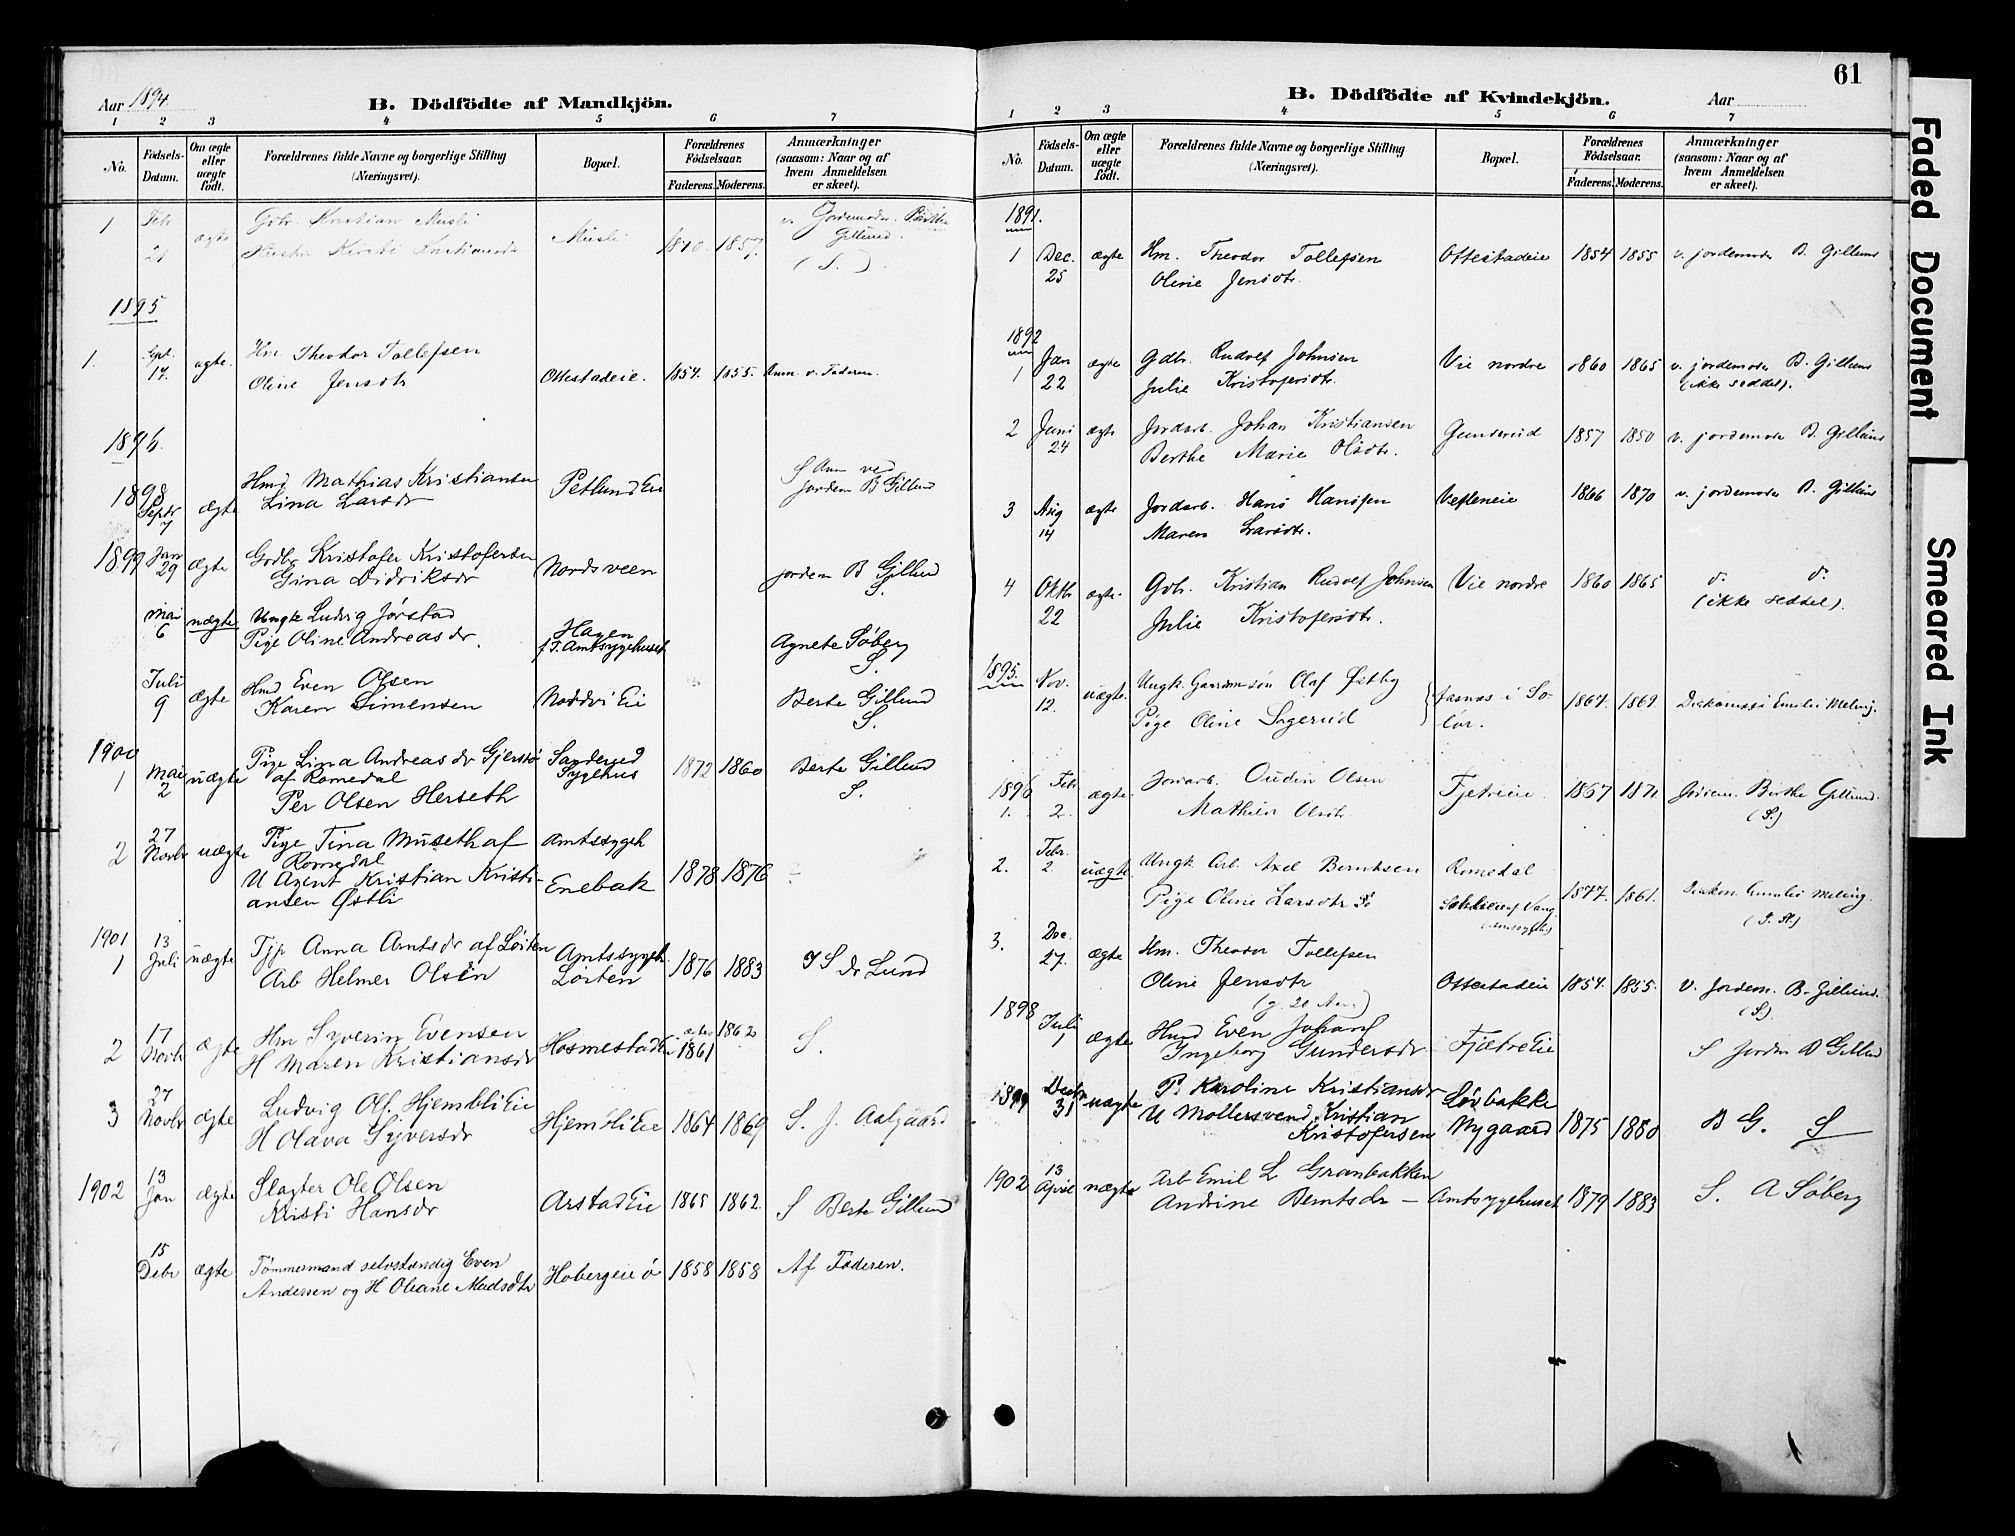 Aar 1894.
B. Dödfödte af Mandkjön.
1 2 3 4 5 6 7
No.
Födsels-Datum.
Om ægte eller uægte födt.
Forældrenes fulde Navne og borgerlige Stilling (Næringsvei).
Bopæl.
Forældrenes Födselsaar.
Faderens. Moderens.
Anmærkninger (saasom: Naar og af hvem Anmeldelsen er skeet).
1 Febr 21 ægte Gdbr. Kristian Musli
Hustru Kirsti Kristiansdr Musli 1840. 1857. v. Jordemoder Birthe Gillund.
(S.)
1895
1. Sept. 17. ægte. Hm. Theodor Tollefsen
Oline Jensdtr Ottestadeie. 1854. 1855. Anm. v. Faderen.
1896.
1898 Septr 7 ægte Hmd Mathias Kristiansen
Lina Larsdr Petlund Eie S Anm ved
jordem B Gillund
1899 Jan 29 ægte Grdbr Kristofer Kristofersen
Gina Didriksdr Nordsveen jordem B Gillund
S.
Mai 6 uægte Ungk Ludvig Jørstad
Pige Oline Andreasdr. Hagen
f. T. Amtsygehuset Agnete Søberg
S.
Juli 9 ægte Hmd Even Olsen
Karen Simensen Noddvi Eie Berte Gillund
S.
1900
1 Mai 2 uægte Pige Lina Andreasdr Gjerstø
af Romedal
Per Olsen Herseth Sanderud
Sygehus 1872 1860 Berte Gillund
S.
2 27 Novbr uægte Pige Tina Museth af
Romedal
U Agent Kristian Kristi-
ansen Østli Amtssygeh
Enebak 1878 1876
1901
1 13 Juli uægte Tjp Anna Arntsdr af Løiten
Arb Helmer Olsen Amtssygeh
Løiten 1876 1883 J S dr Lund
2 17 Novbr ægte Hm Syverin Evensen
H Maren Kristiansdr Hosmestad 1861 1862 S.
3 27 Novbr ægte Ludvig Ols. Hjemsli Eie
H Olava Syversdr Hjemsli Eie 1864 1869 S. J. Aalgaard
1902 13 Jan ægte Slagter Ole Olsen
Kristi Hansdr Arstad Eie 1865 1862 S Berte Gillund
15 Debr ægte Tömmermand selvstændig Even
Andersen og H Oleane Madsdtr Hobergeie ö 1858 1858 Af Faderen.
61
B. Dödfödte af Kvindekjön.
Aar
1 2 3 4 5 6 7
No.
Födsels-Datum.
Om ægte eller uægte födt.
Forældrenes fulde Navne og borgerlige Stilling (Næringsvei).
Bopæl.
Forældrenes Födselsaar.
Faderens. Moderens.
Anmærkninger (saasom: Naar og af hvem Anmeldelsen er skeet).
1891.
1 Dec. 25 ægte Hm. Theodor Tollefsen
Oline Jensdtr. Ottestadeie 1854 1855 v. jordemoder B. Gillund
1892
1 Jan 22 ægte Gdbr. Rudolf Johnsen
Julie Kristofersdtr. Vie nordre 1860 1865 v. jordemoder B. Gillund
(ikke seddel).
2 Juni 24 ægte Jordarb. Johan Kristiansen
Berthe Marie Olsdtr. Gundereid 1857 1850 v. jordemoder B. Gillund
3 Aug 14 ægte Jordarb. Hans Hanssen
Maren Larsdtr. Vesleneie 1866 1870 v. jordemoder B. Gillund
4 Oktbr 22 ægte Gdbr. Kristian Rudolf Johnsen
Julie Kristofersdtr. Vie nordre 1860 1865 d. d.
(ikke seddel).
1895. Nov. 12. uægte. Ungk. Gaardmsön Olaf Østby
Pige Oline Sagerud Jasnæs i So-
lör. 1867. 1869. Diakonisse Emilie Meling.
1896
1. Febr 2. ægte Jordarb. Oudin Olsen
Mathea Olsdtr. Fjetreeie 1867 1871 Jordem. Birthe Gillund.
(S.)
2. Febr. 2 uægte Ungk. Arb. Axel Berntsen
Pige Oline Larsdtr Romedal
1877. 1861. Diakon. Emilie Meling.
3. Dec. 27. ægte Hm. Theodor Tollefsen
Oline Jensdtr
(g. 20 Aar.) Ottestadeie 1854. 1855. v. Jordem. B. Gillund.
(S.)
1898 Juli 1 ægte Hmd Even Johans
Ingeborg Gundersdr Fjetre Eie S Jordem B Gillund
1899 Decbr 31 uægte P. Karoline Kristiansdr
U Möllersvend Kristian
Kristofersen Løvbakke
Nygaard 1875 1880 B G. S
1902 13 April uægte Arb Emil L Granbakken
Andrine Berntsdr – Amtssygehuset 1879 1883 S. A Søberg
Faded Document
Smeared Ink